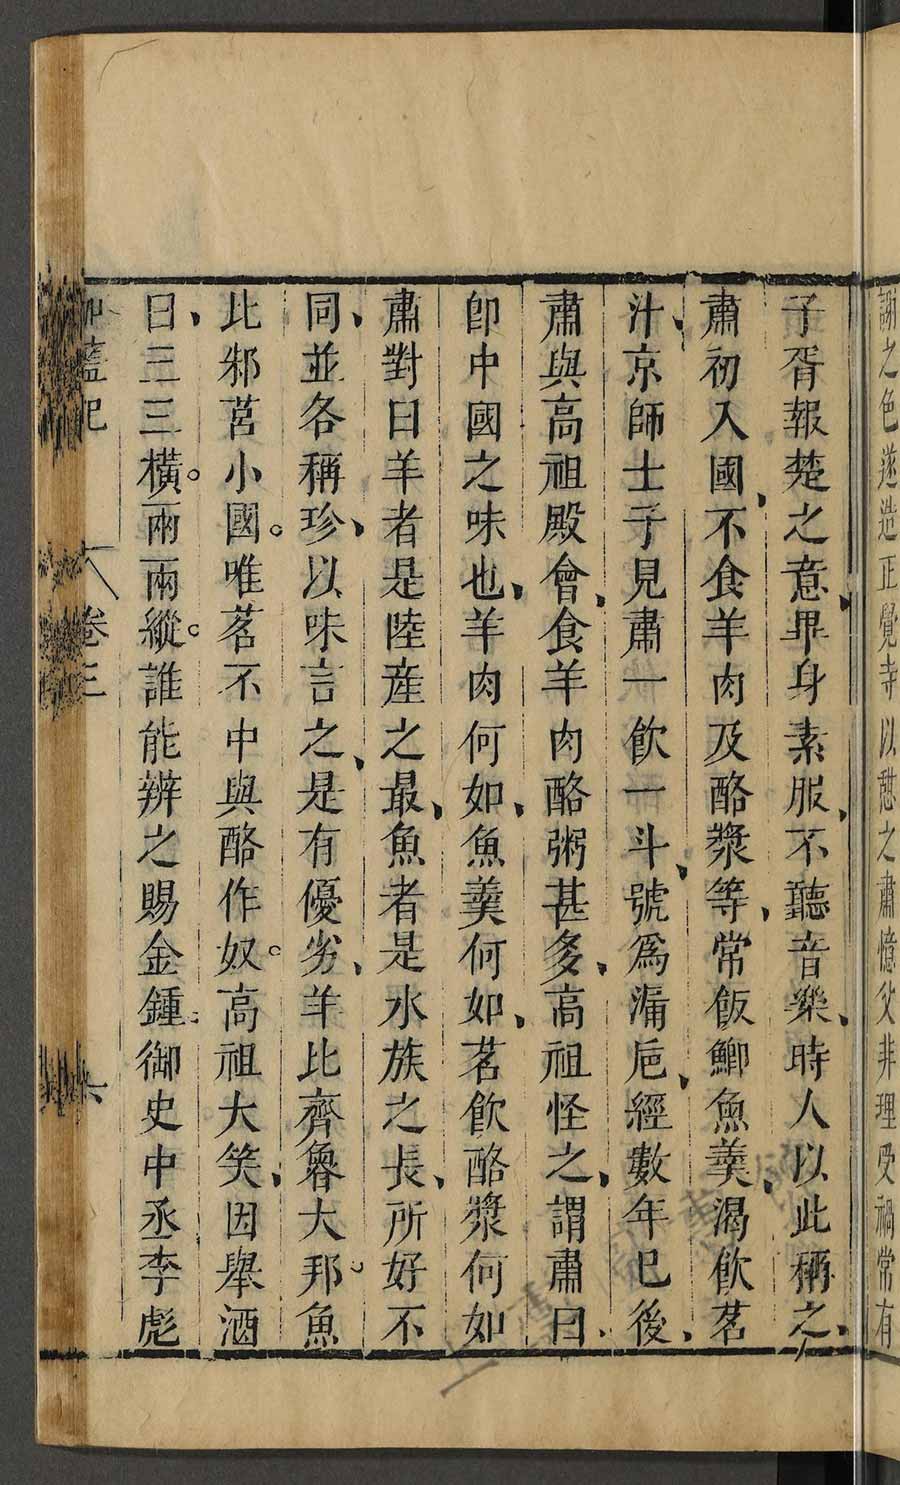 謝之色遂造正覺寺以憩之肅憶父非理受禍常有
子胥報楚之意畢身素服不聽音樂時人以此稱之
肅初入國不食羊肉及酪漿等常飯鯽魚羹渴飲茗
汁京師士子見肅一飲一斗號爲漏巵經數年已後
肅與高祖殿會食羊肉酪粥甚多高祖怪之謂肅曰
卽中國之味也羊肉何如魚羹何如茗飲酪漿何如
肅對曰羊者是陸產之最魚者是水族之長所好不
同並各稱珍以味言之是有優劣羊比齊魯大邦魚
比邾莒小國唯茗不中與酪作奴高祖大笑因舉酒
曰三三橫兩兩縱誰能辨之賜金鍾御史中丞李彪
伽藍記 卷三 六